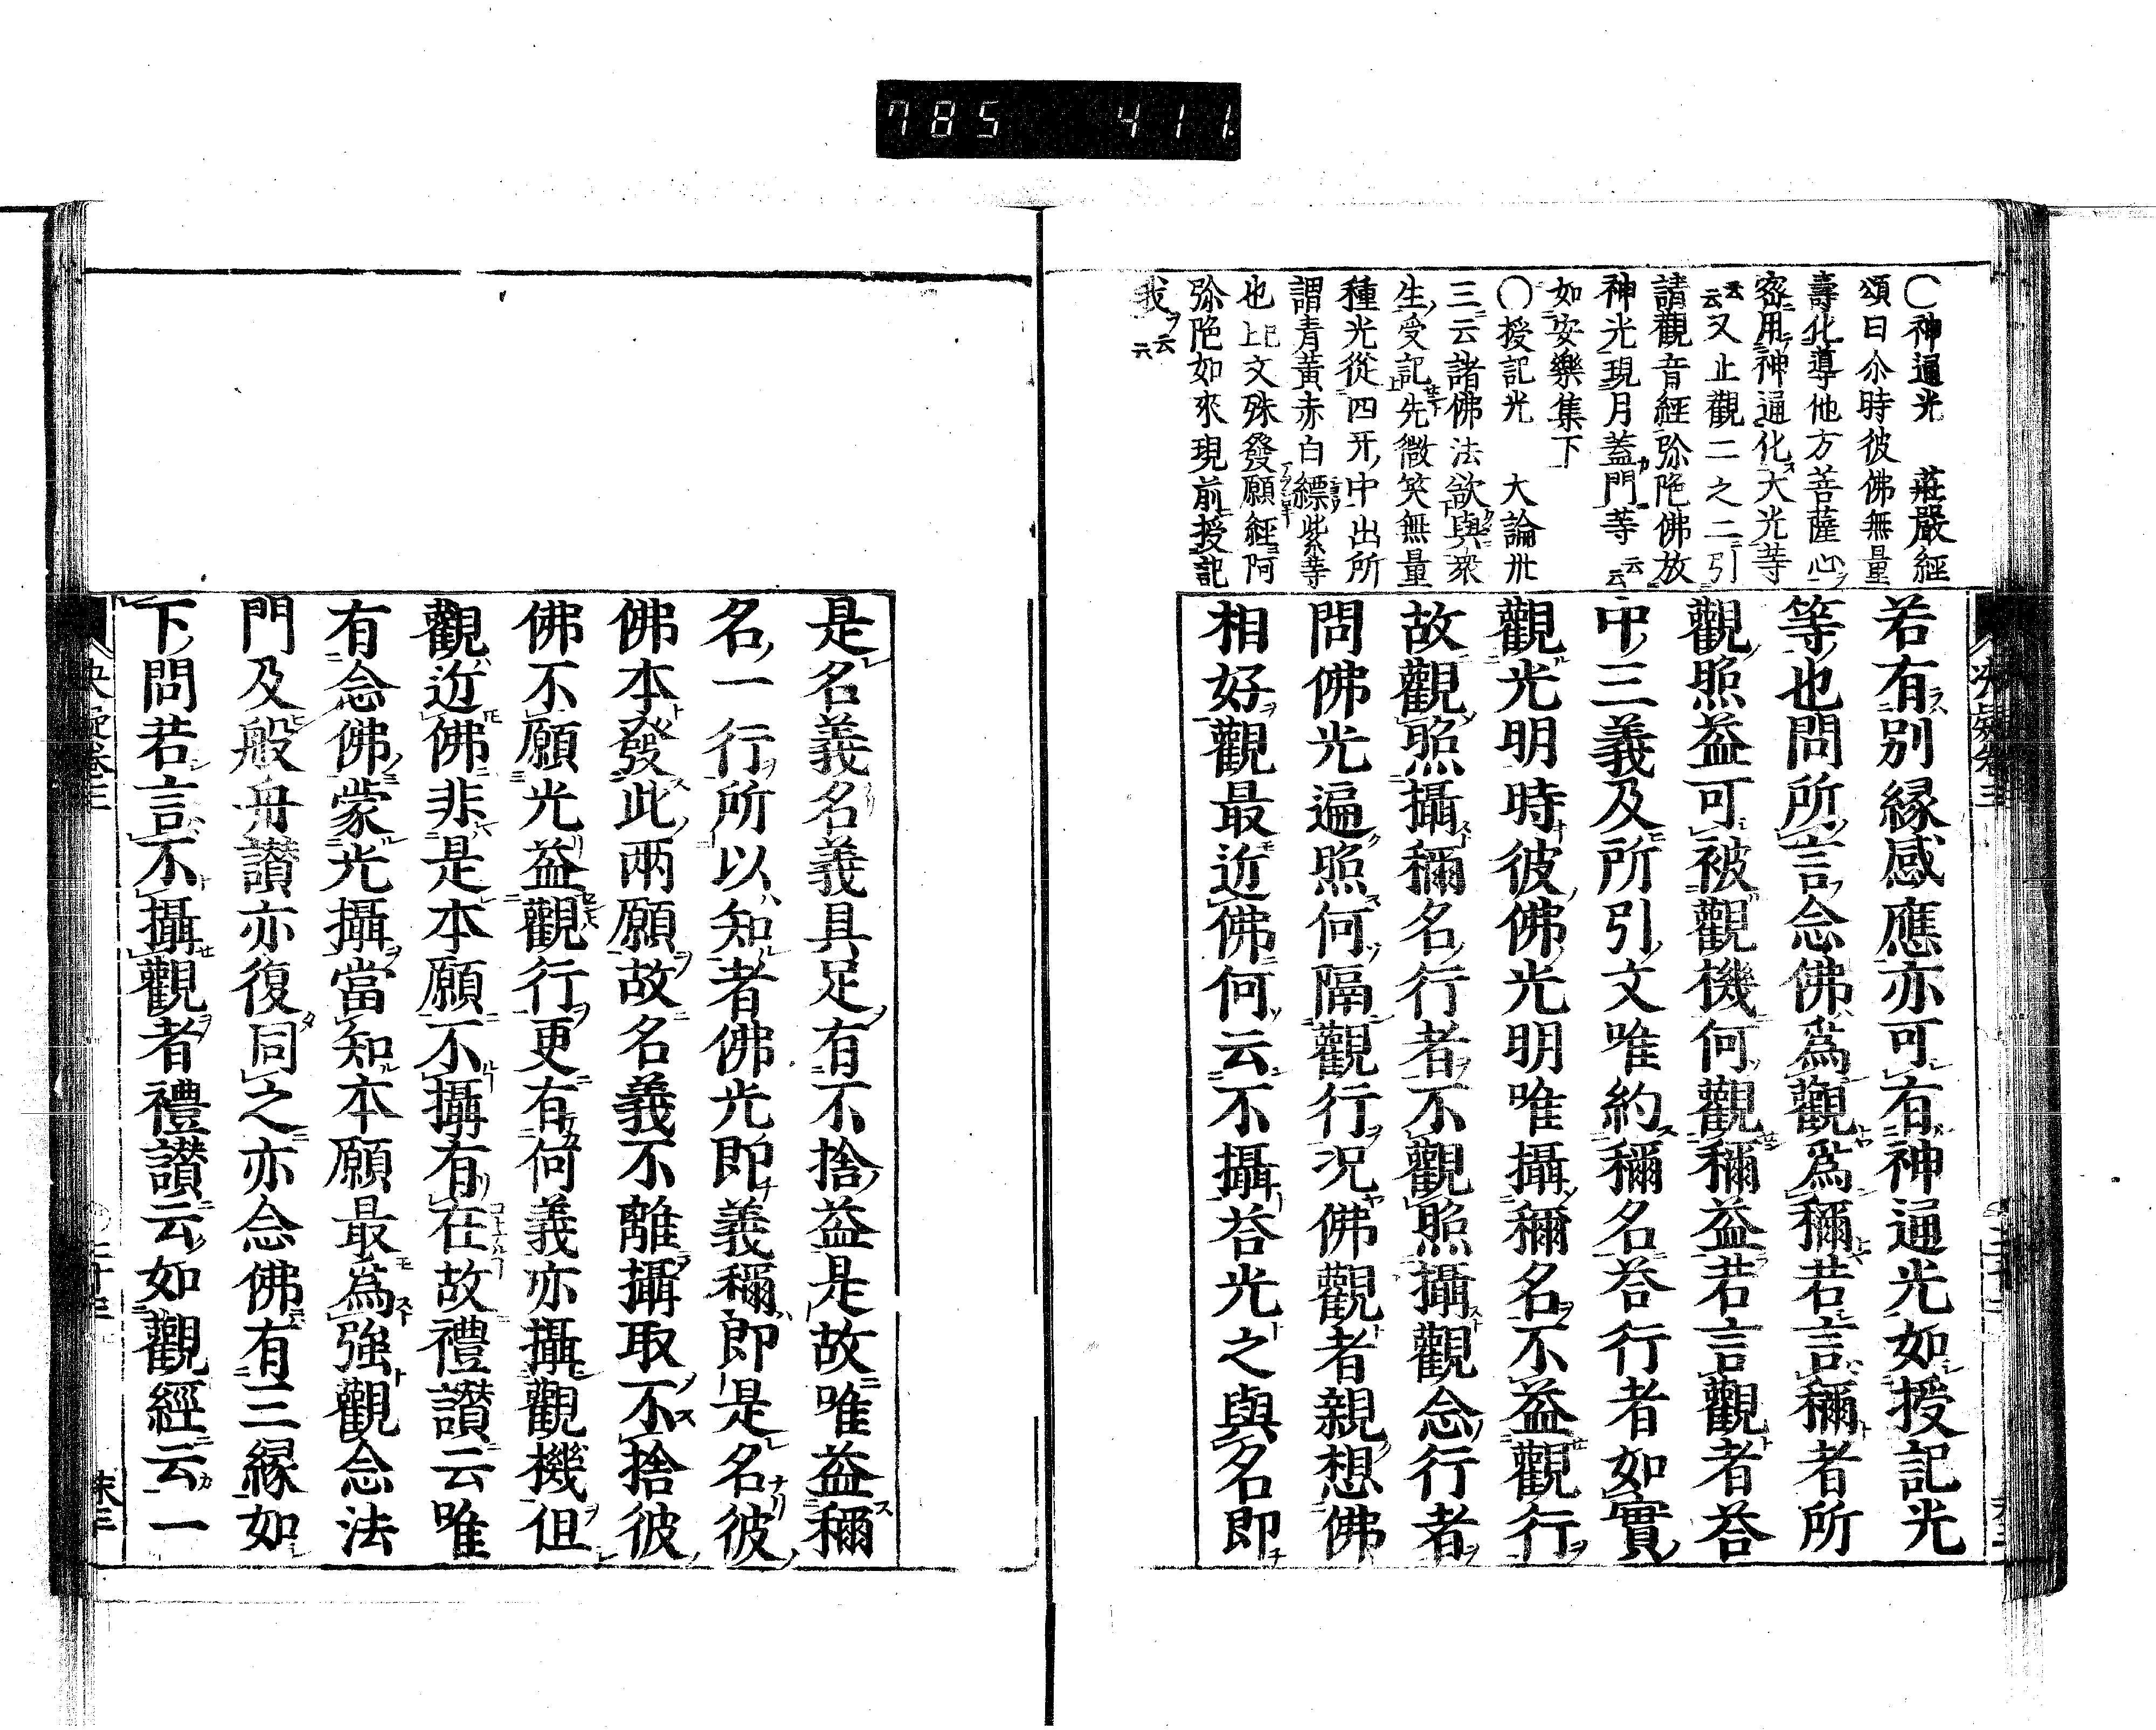 785 411.
〇神通光 莊嚴經
頌曰尒時彼佛無量
壽化導他方菩薩心
密用神通化大光等
云云又止觀二之二引
請觀音經弥陀佛放
神光現月蓋門等云云
如安樂集下
〇授記光 大論卅
三云諸佛法欲與衆
生受記先微笑無量
種光從四牙中出所
謂青黃赤白縹紫等
也已上文殊發願經阿
弥陀如來現前授記
我云云
若有別緣感應亦可有神通光如授記光
等也問所言念佛爲觀爲稱若言稱者所
觀照益可被觀機何觀稱益若言觀者荅
中三義及所引文唯約稱名荅行者如實
觀光明時彼佛光明唯攝稱名不益觀行
故觀照攝稱名行者不觀照攝觀念行者
問佛光遍照何隔觀行況佛觀者親想佛
相好觀最近佛何云不攝荅光之與名即
是名義名義具足有不捨益是故唯益稱
名一行所以知者佛光即義稱即是名彼
佛本發此兩願故名義不離攝取不捨彼
佛不願光益觀行更有何義亦攝觀機但
觀近佛非是本願不攝有在故禮讃云唯
有念佛蒙光攝當知本願最爲強觀念法
門及般舟讃亦復同之亦念佛有三緣如
下問若言不攝觀者禮讃云如觀經云一
決疑卷三